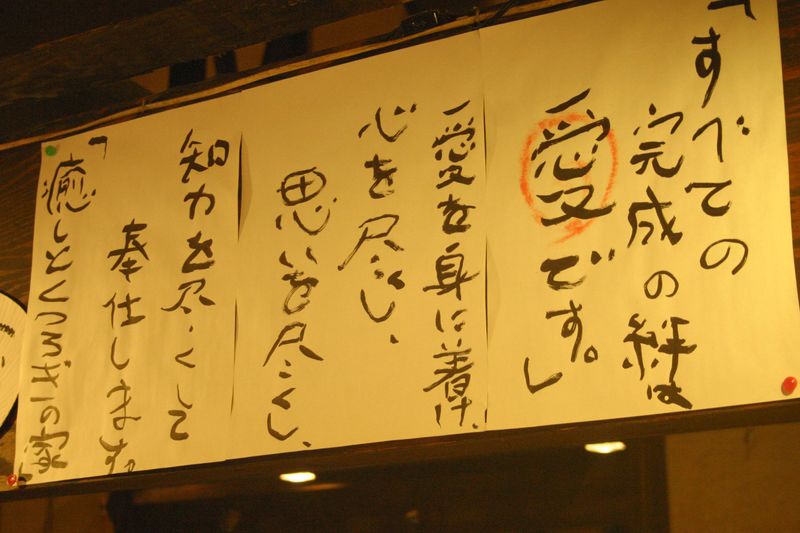 「すべての
完成の絆は
愛です。」
愛を身に着け、
心を尽くし、
思いを尽くし、
知力を尽くして
奉仕します。
「癒しとくつろぎの家」